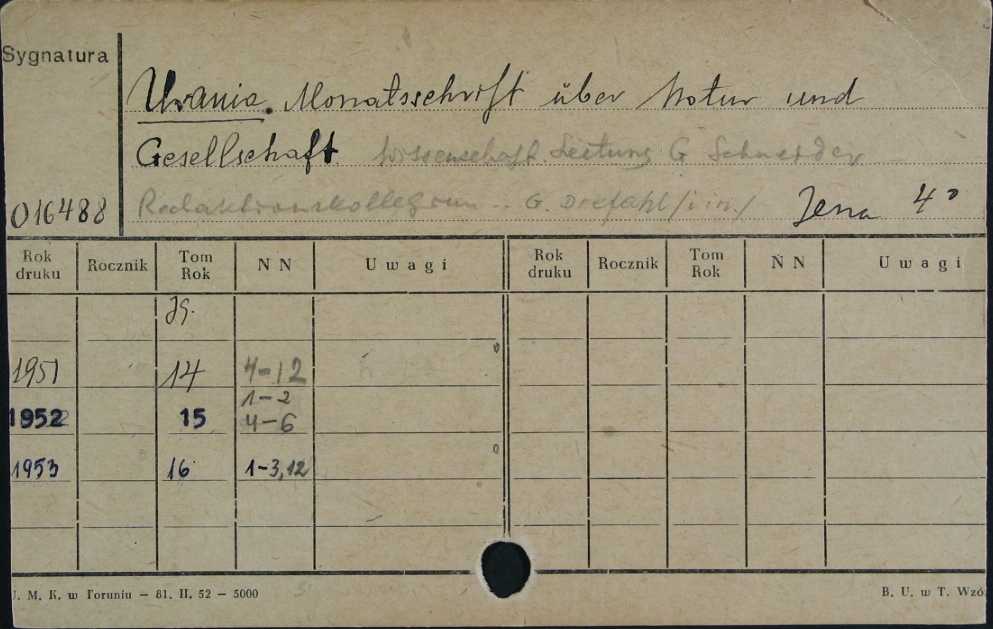 Sygnatura
Urania. Monatsschrift über Natur und
Gesellschaft. Wissenschaft. Leitung G. Schneider
016488 Redaktionskollegium .. G. Drefahl /i in/ Jena 4°
Rok druku Rocznik Tom Rok N N Uwagi Rok druku Rocznik Tom Rok N N Uwagi
Jg.
1951 14 4-12
1-2
1952 15 4-6
1953 16 1-3,12
U. M. K. w Toruniu — 81. II. 52 — 5000 B. U. w T. Wzó